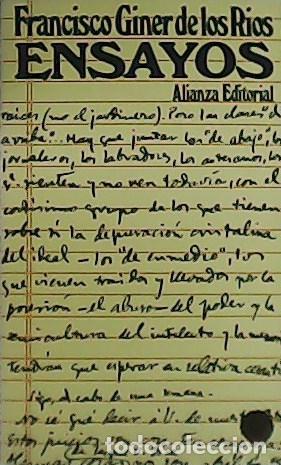 Francisco Giner de los Ríos
ENSAYOS
Alianza Editorial
raíces (no el jardinero). Pero las clases "de
arriba"... Hay que juntar los "de abajo", los
jornaleros, los labradores, los artesanos, los
q. sienten y no ven todavía, con el
grupo de los que tienen
sobre sí la depuración cristalina
del ideal — los "de enmedio", los
que vienen traídos y llevados por la
posesión — el abuso del poder y la
del intelecto y la
tendrían que esperar en relativa
Sigo, al cabo de una semana.
No sé qué decir á V. de
Estos
todocoleccion